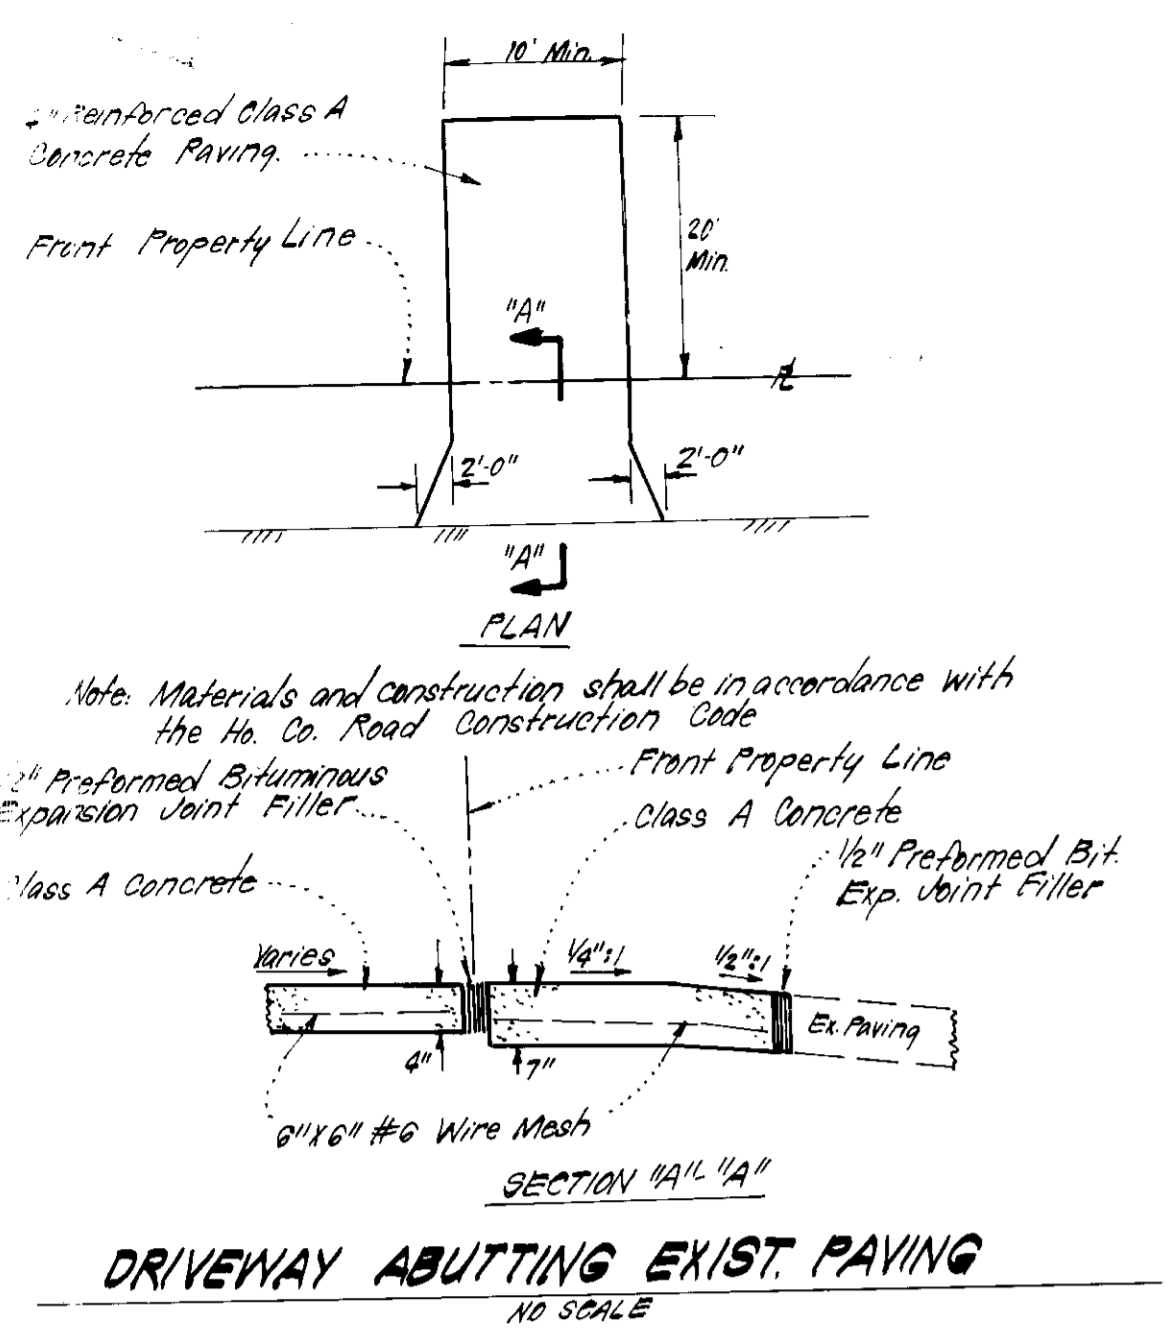 10' Min.
Reinforced Class A
Concrete Paving.
Front Property Line
20'
Min.
"A"
PL
2'-0"
2'-0"
"A"
PLAN
Note: Materials and construction shall be in accordance with
the Ho. Co. Road Construction Code
Front Property Line
Preformed Bituminous
Expansion Joint Filler
Class A Concrete
1/2" Preformed Bit.
Exp. Joint Filler
Class A Concrete
Varies
1/4":1
1/2":1
Ex. Paving
4"
7"
6"X6" #6 Wire Mesh
SECTION "A"-"A"
DRIVEWAY ABUTTING EXIST. PAVING
NO SCALE